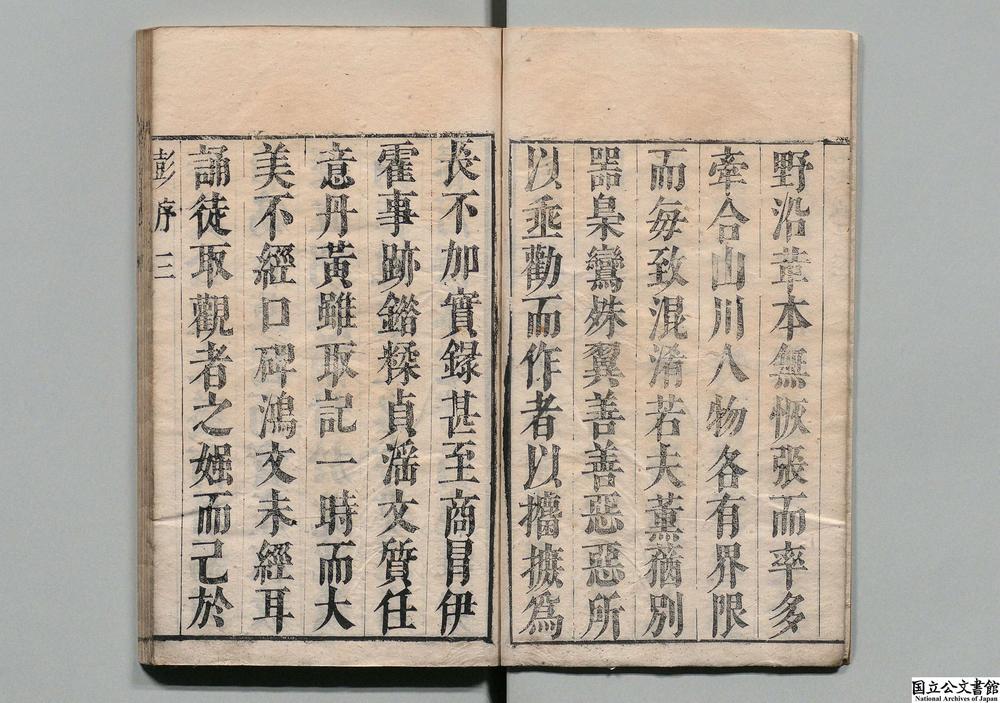 野沿葦本無恢張而率多
牽合山川人物各有界限
而每致混淆若夫薰蕕別
器梟鸞殊翼善善惡惡所
以垂勸而作者以攟摭爲
長不加實録甚至商冒伊
霍事跡錯揉貞滛文質任
意丹黃雖取記一時而大
美不經口碑鴻文未經耳
誦徒取觀者之娓而已於
彭序 三
国立公文書館
National Archives of Japan